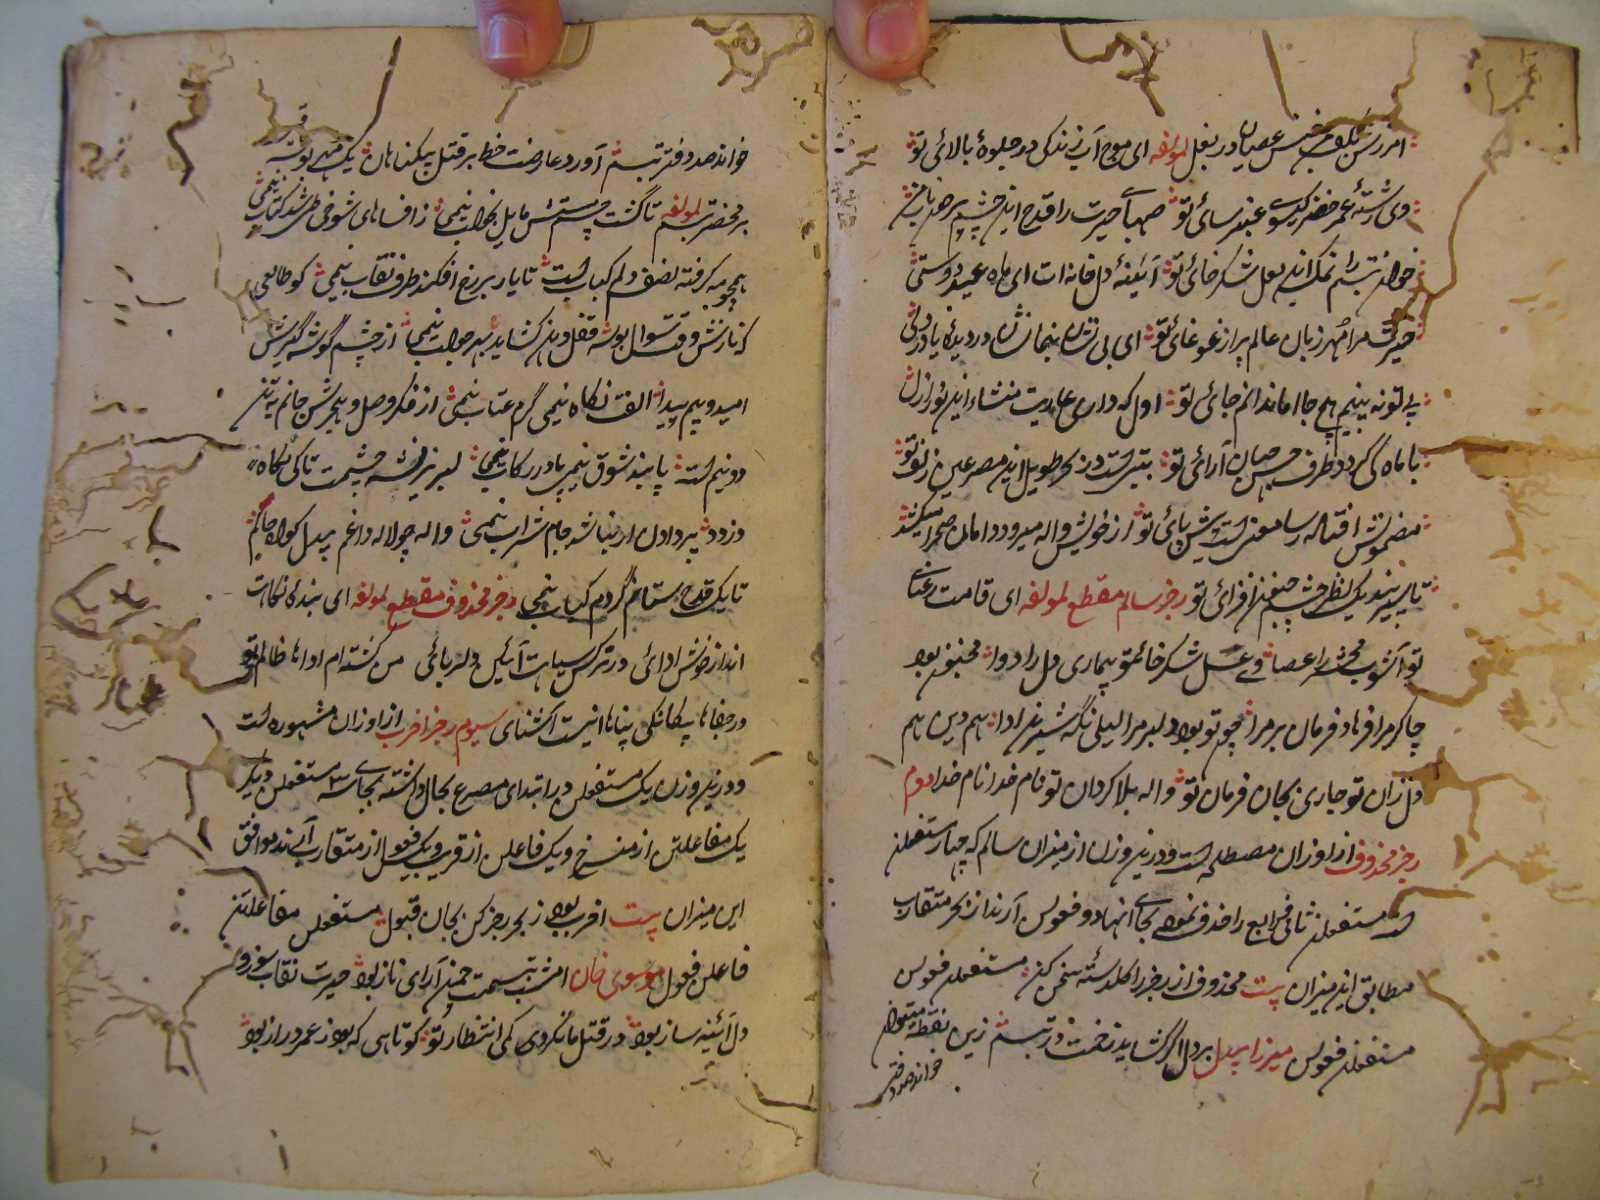 لمؤلفه ای موج آب زندگی در جلوهٔ بالائی تو
عمر خضر گیسوی عنبر سای تو صهبای حیرت را قدح این چشم
تبسم را نمک این لعل شکر خای تو آئینهٔ دل خانه ات ای ماه
زبان عالم پر از غوغائی تو ای بی نشان پنهان نشان در دیدهٔ
هیچ جا اما ندانم جای تو اول که داری عاریت منشاء این
با ماه کی گردد طرف حسن جهان آرائی تو بیتی است در بحر طویل این مصرعین زلف تو
مضمونش افتاده رسا معنی است پیش پای تو از خویش واله میرود دامان صحرا میکشد
تا سیر بیند یک نظر چشم جنون افزائی تو رجز سالم مقطع لمؤلفه ای قامت رعنای
تو آشوب محشر را عصا وی لعل شکر خائی تو بیماری دل را دوا مجنون بود
چاکر مرا فرهاد فرمان بر مرا چو تو بود دلبر مرا لیلی نگه شیرین ادا هم دین هم
دل زان تو جاری بجان فرمان تو واله بلا گردان تو نام خدا نام خدا دوم
رجز محذوف از اوزان مصطلحه است و درین وزن از میزان سالم که چهار مستفعلن
است مستفعلن ثانی و رابع را حذف نموده بجای آنها دو فعولن آرند از بحر متقارب
مطابق این میزان بیت محذوف از رجز را گلدستهٔ سخن کن مستفعلن فعولن
مستفعلن فعولن میرزا بیدل بر دل اگر گشاید زخمت در تبسم زین نقطه میتوان
خواند صد دفتر
خواند صد دفتر تبسم آورد عارضت خط بر قتل بیگناهان یک
بر محضر تبسم لمؤلفه تا گشت چشم مستش مایل بخواب نیمی زافسانهای شوخی طی شد کتاب نیمی
گرفته نصف دلم کباب است تا یار بر رخ افکند طرف نقاب نیمی کو طالعی
که نازش وقت سوال بوسه قفل دهن گشاید بهر جواب نیمی از چشم گوشه گیرش
امید و بیم پیدا الفت نگاه نیمی گرم عتاب نیمی از فکر وصل و هجرش جانم
دو نیم است پابند شوق نیمی پا در رکاب نیمی لبریز نشه چشمت تا کی نگاه
دزدد پر دادن ار نباشد جام شراب نیمی واله چو لاله داغم بیدل گواه حالم
تا یک قدح ستانم گردم کباب نیمی رجز محذوف مقطع لمؤلفه ای بندهٔ نگاهت
انداز خوش ادائی در ترکش سیاهت آئین دلربائی من کشته ام ادا ها ظالم تو
در جفاها بیگانگی پناها نیست آشنای سیوم رجز اخرب از اوزان مشهوره است
و درین وزن یک مستفعلن در ابتدای مصرع بحال داشته بجای ۳ مستفعلن دیگر
یک مفاعلتن از منسرح و یک فاعلن از قریب و یک فعول از متقارب آرند موافق
این میزان بیت اخرب بود ز بحر رجز کن بجان قبول مستفعلن مفاعلتن
فاعلن فعول موسوی خان امشب تبسمت چمن آرای ناز بود حیرت نقاب
دل آئینه ساز بود در قتل ما نکردی کمی انتظار تو کوتاهی که بود ز عمر دراز بود